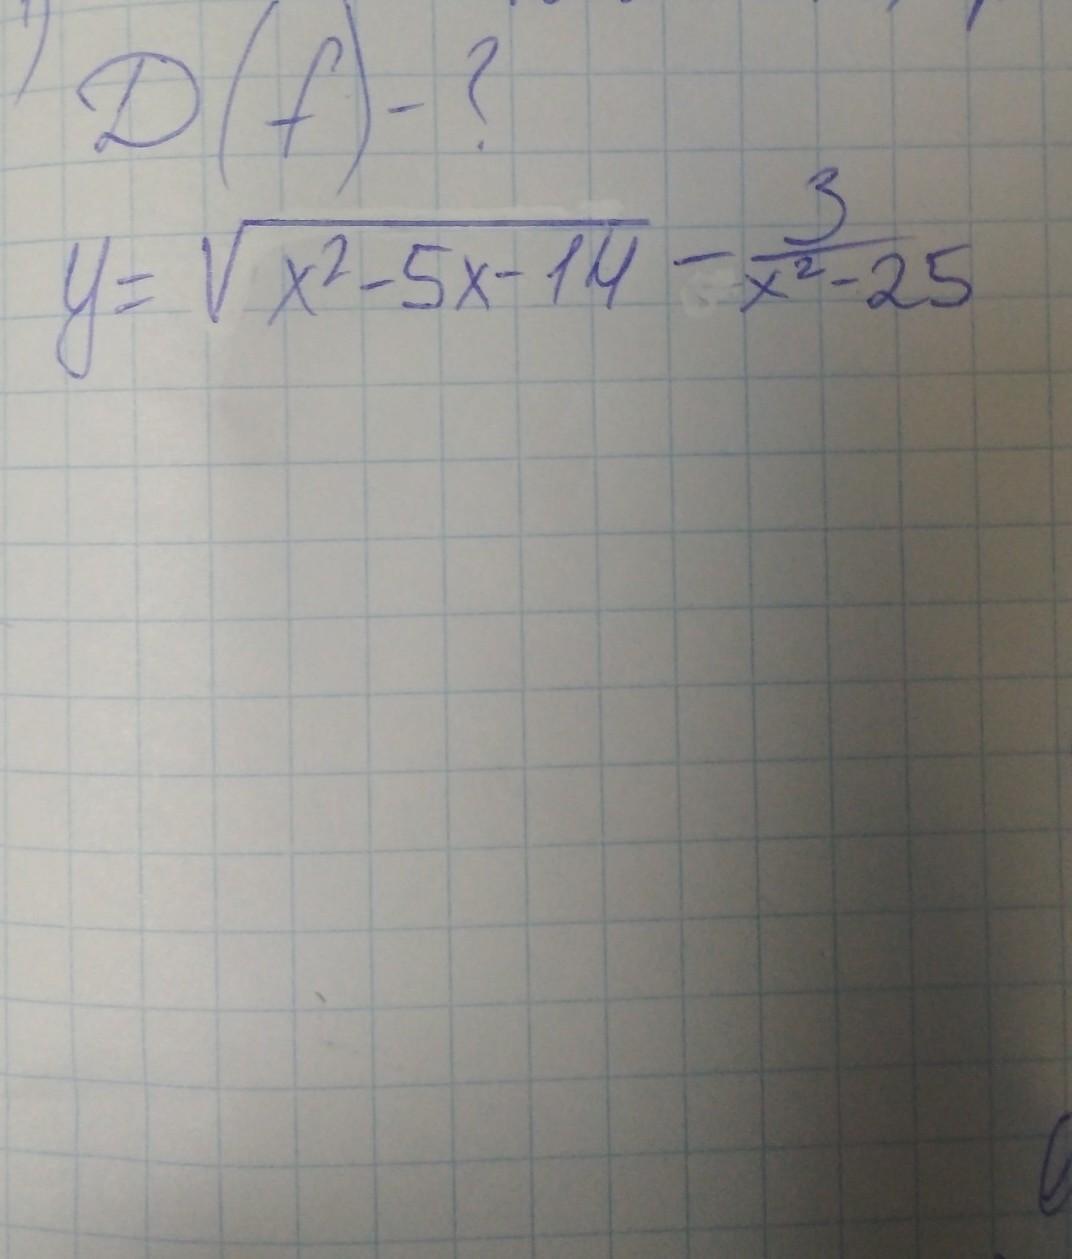 D(f) - ?
y = √(x² - 5x - 14) - 3/(x² - 25)